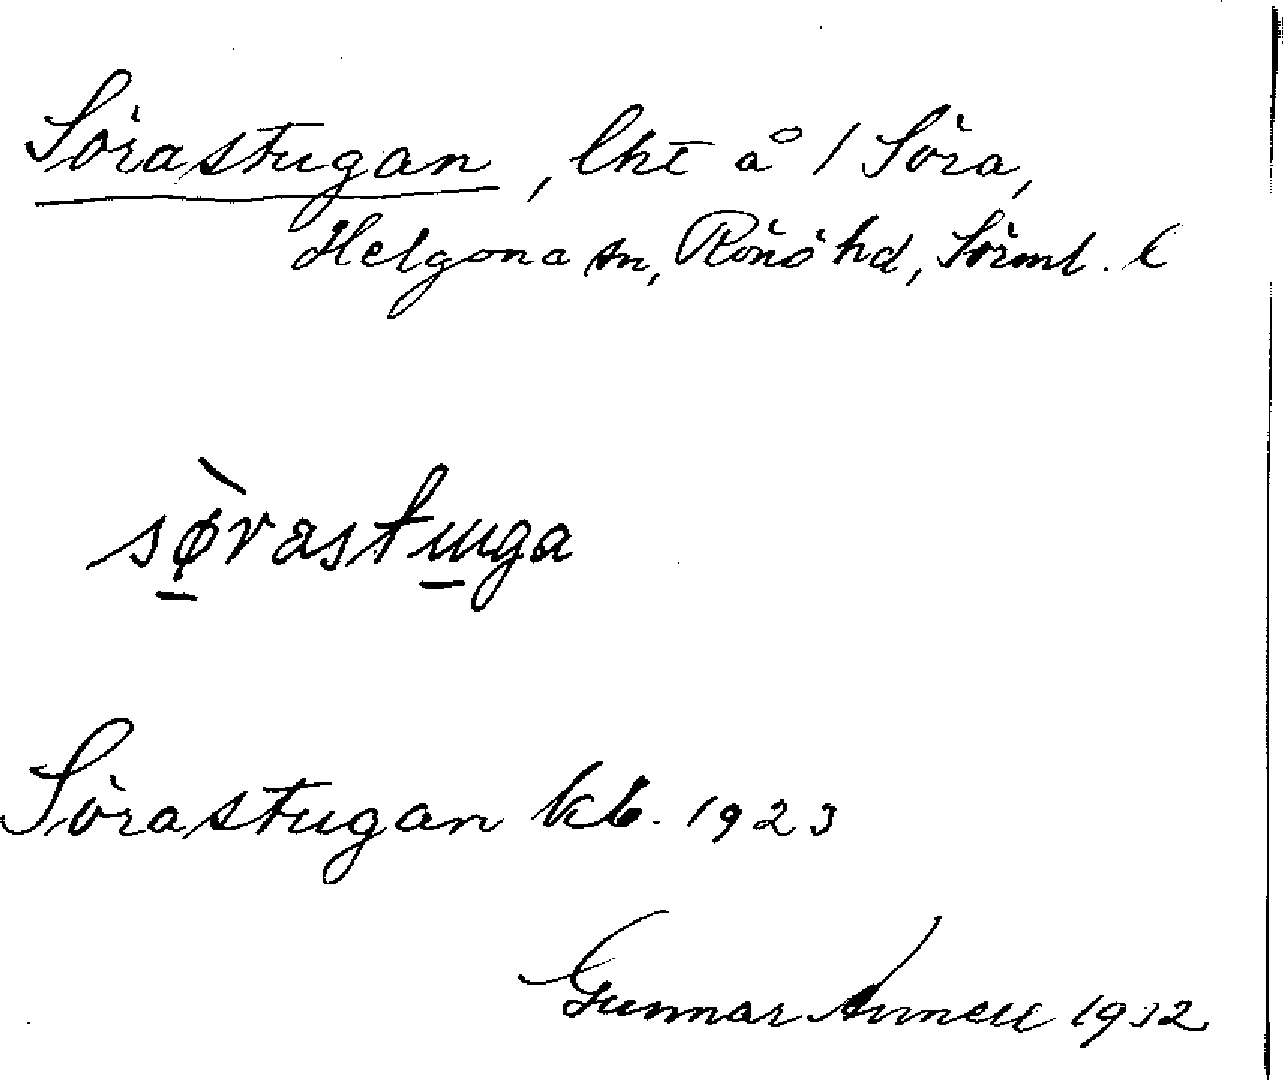 Sörastugan, lht å 1 Söra,
Helgona sn, Rönö hd, Sörml. l
sø̀rastuga
Sörastugan kb. 1923
Gunnar Annell 1932